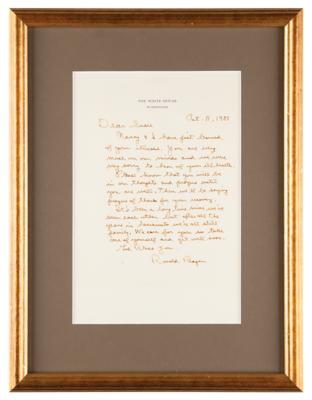 THE WHITE HOUSE
WASHINGTON
Oct. 11, 1981
Dear
Nancy & I have just learned
of your illness. You are very
much on our minds and we were
very sorry to hear of your ill health.
Please know that you will be
in our thoughts and prayers until
you are well. Then we'll be saying
prayers of thanks for your recovery.
It's been a long time since we've
seen each other but after all the
years in Sacramento we're all still
family. We care for you so take
care of yourself and get well soon.
God Bless You
Ronald Reagan